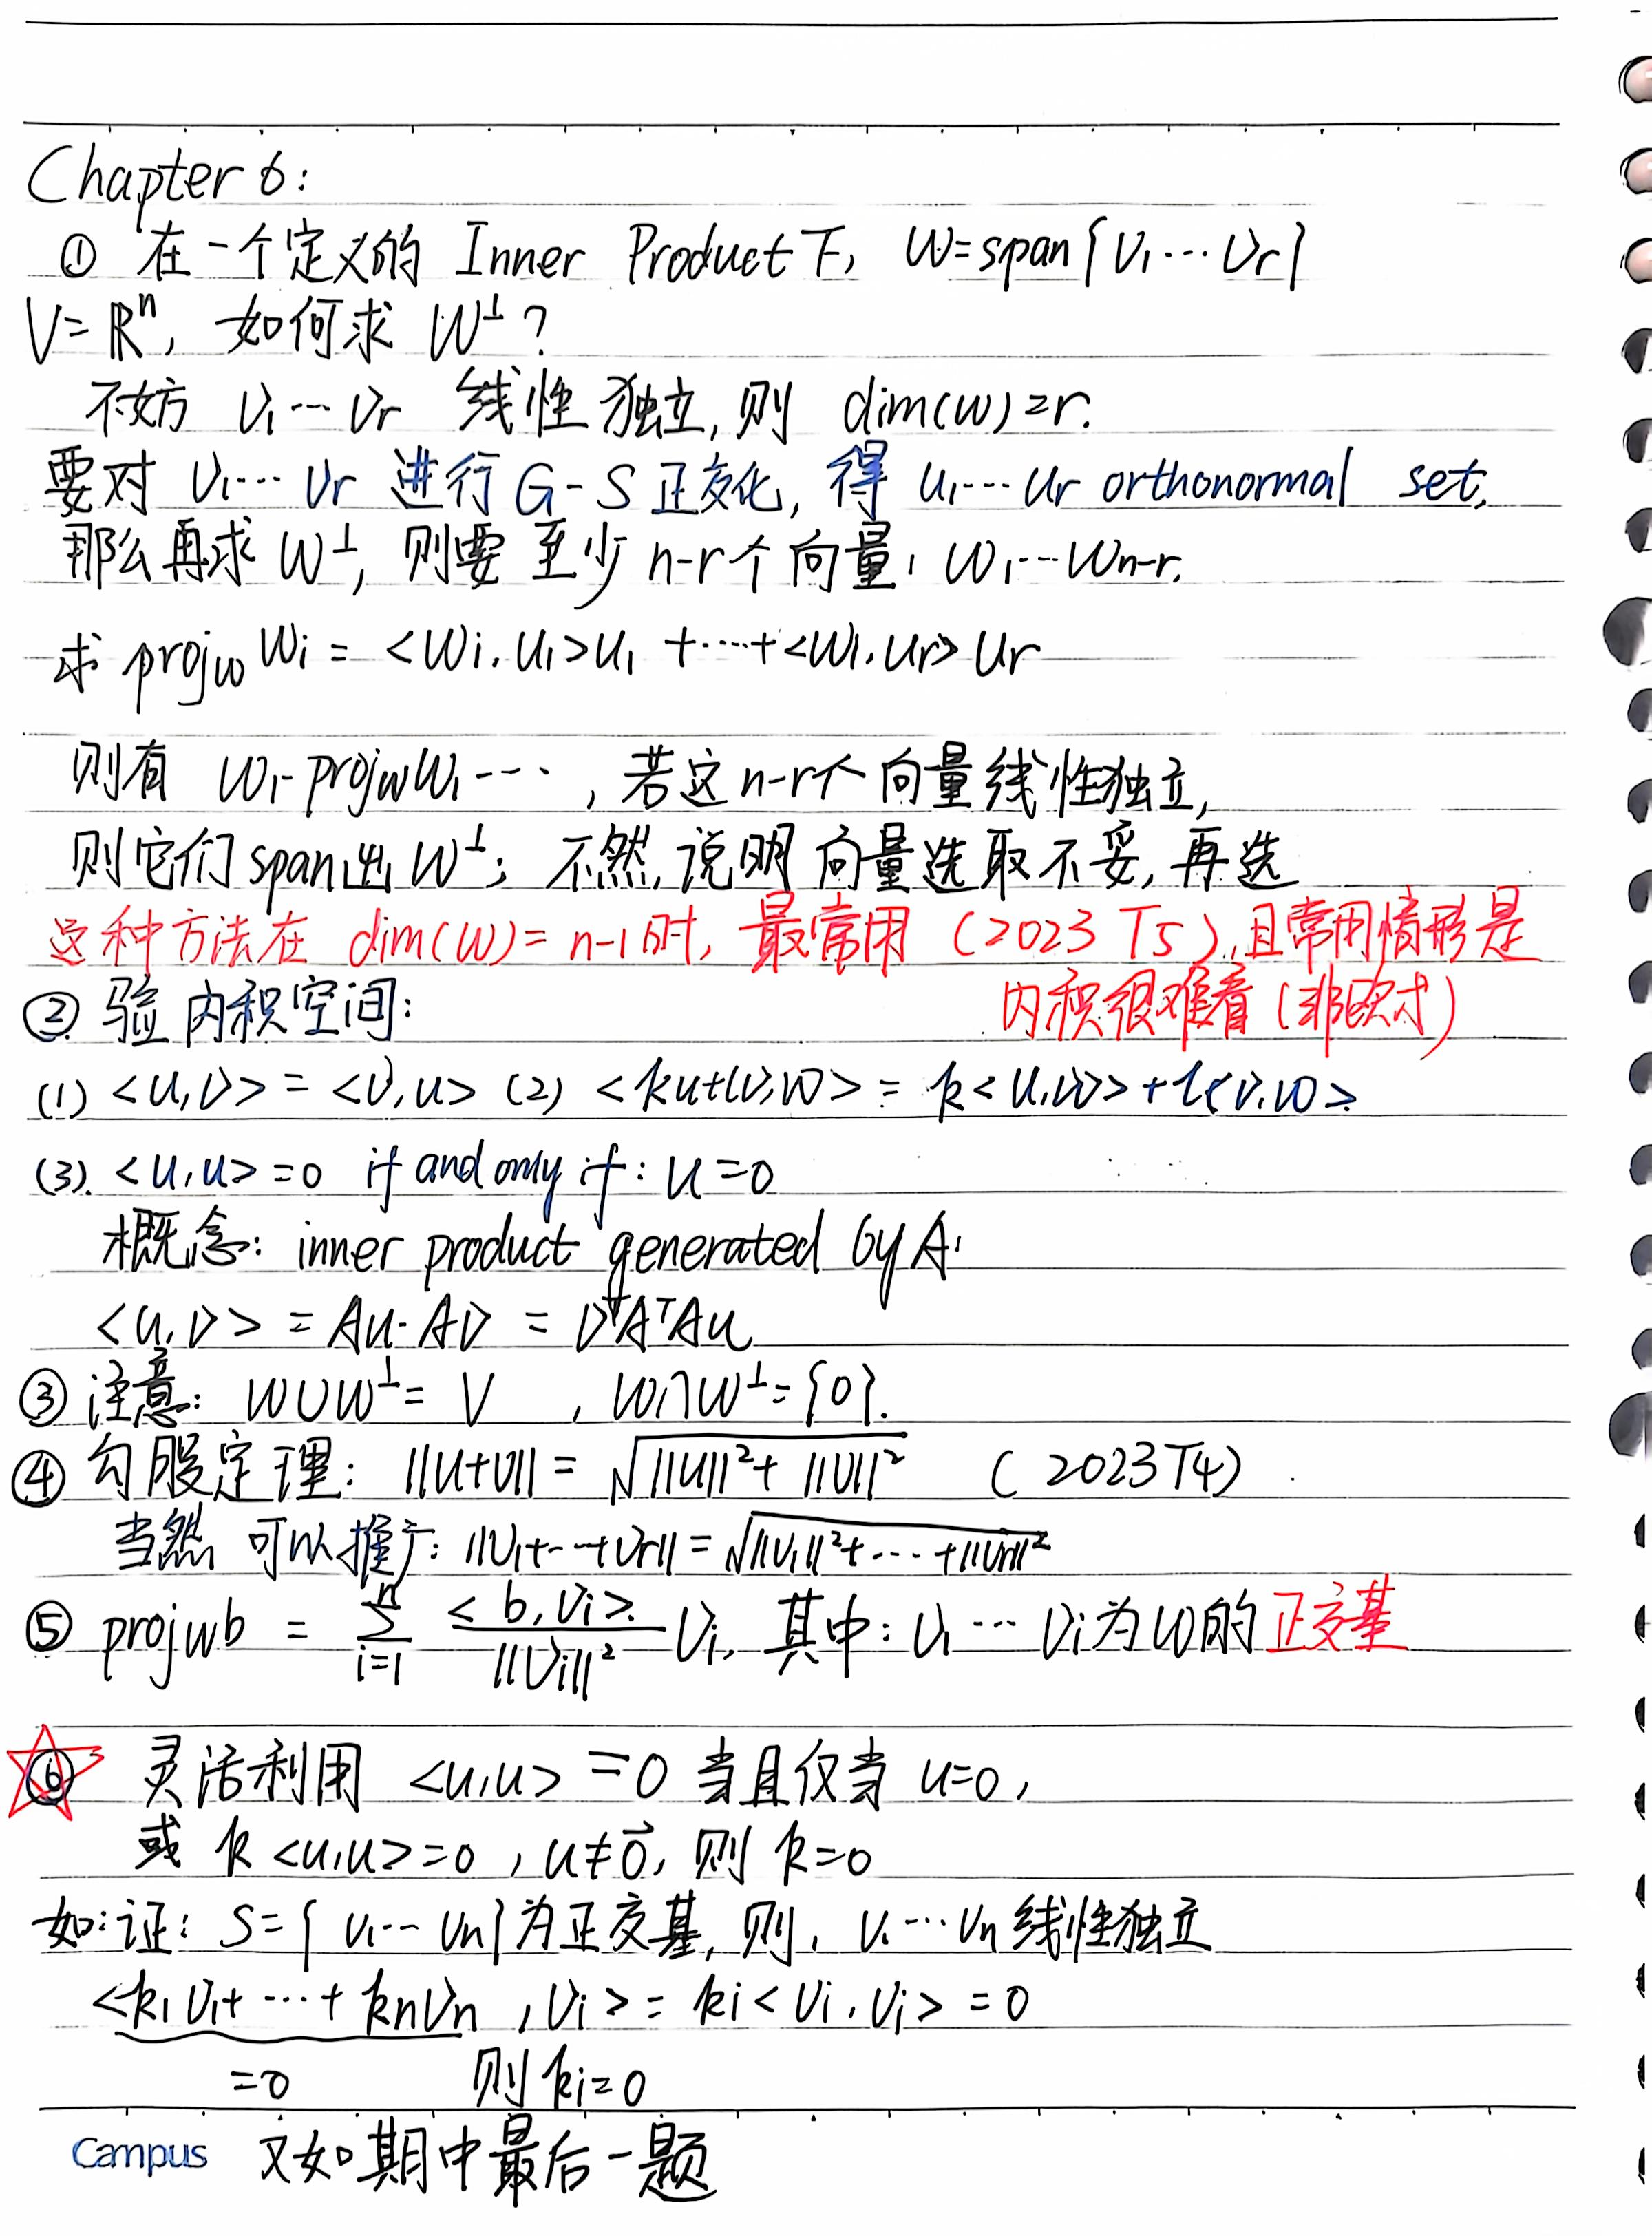 Chapter 6:
① 在一个定义的 Inner Product下, W=span{v₁⋯vᵣ}
V=ℝⁿ, 如何求 W⊥?
不妨 v₁⋯vᵣ 线性独立,则 dim(W)=r.
要对 v₁⋯vᵣ 进行G-S正交化, 得 u₁⋯uᵣ orthonormal set,
那么再求W⊥, 则要至少n-r个向量: w₁⋯wₙ₋ᵣ.
求 proj_W wᵢ = <wᵢ, u₁>u₁ +⋯+<wᵢ, uᵣ>uᵣ
则有 w₁-proj_W w₁⋯ , 若这n-r个向量线性独立,
则它们span出W⊥; 不然,说明向量选取不妥,再选
这种方法在 dim(W)=n-1时, 最常用 (2023 T5),且常用情形是
内积很难看(非欧式)
② 验内积空间:
(1) <u,v> = <v,u> (2) <ku+lv,w> = k<u,w>+l<v,w>
(3). <u,u>=0 if and only if: u=0
概念: inner product generated by A:
<u,v> = Au·Av = vᵀAᵀAu
③ 注意: W∪W⊥= V , W∩W⊥={0}.
④ 勾股定理: ||u+v|| = √(||u||²+||v||²) (2023T4)
当然 可以推广: ||v₁+⋯+vᵣ|| = √(||v₁||²+⋯+||vᵣ||²)
⑤ proj_W b = ∑ᵢ₌₁ⁿ <b,vᵢ>/||vᵢ||² vᵢ, 其中: v₁⋯vᵢ为W的正交基
⑥ 灵活利用 <u,u> =0 当且仅当 u=0,
或 k<u,u>=0, u≠0⃗, 则 k=0
如:证: S={v₁⋯vₙ}为正交基, 则, v₁⋯vₙ线性独立
<k₁v₁+⋯+kₙvₙ ,vᵢ> = kᵢ<vᵢ,vᵢ> =0
=0 则 kᵢ=0
Campus 又如期中最后一题